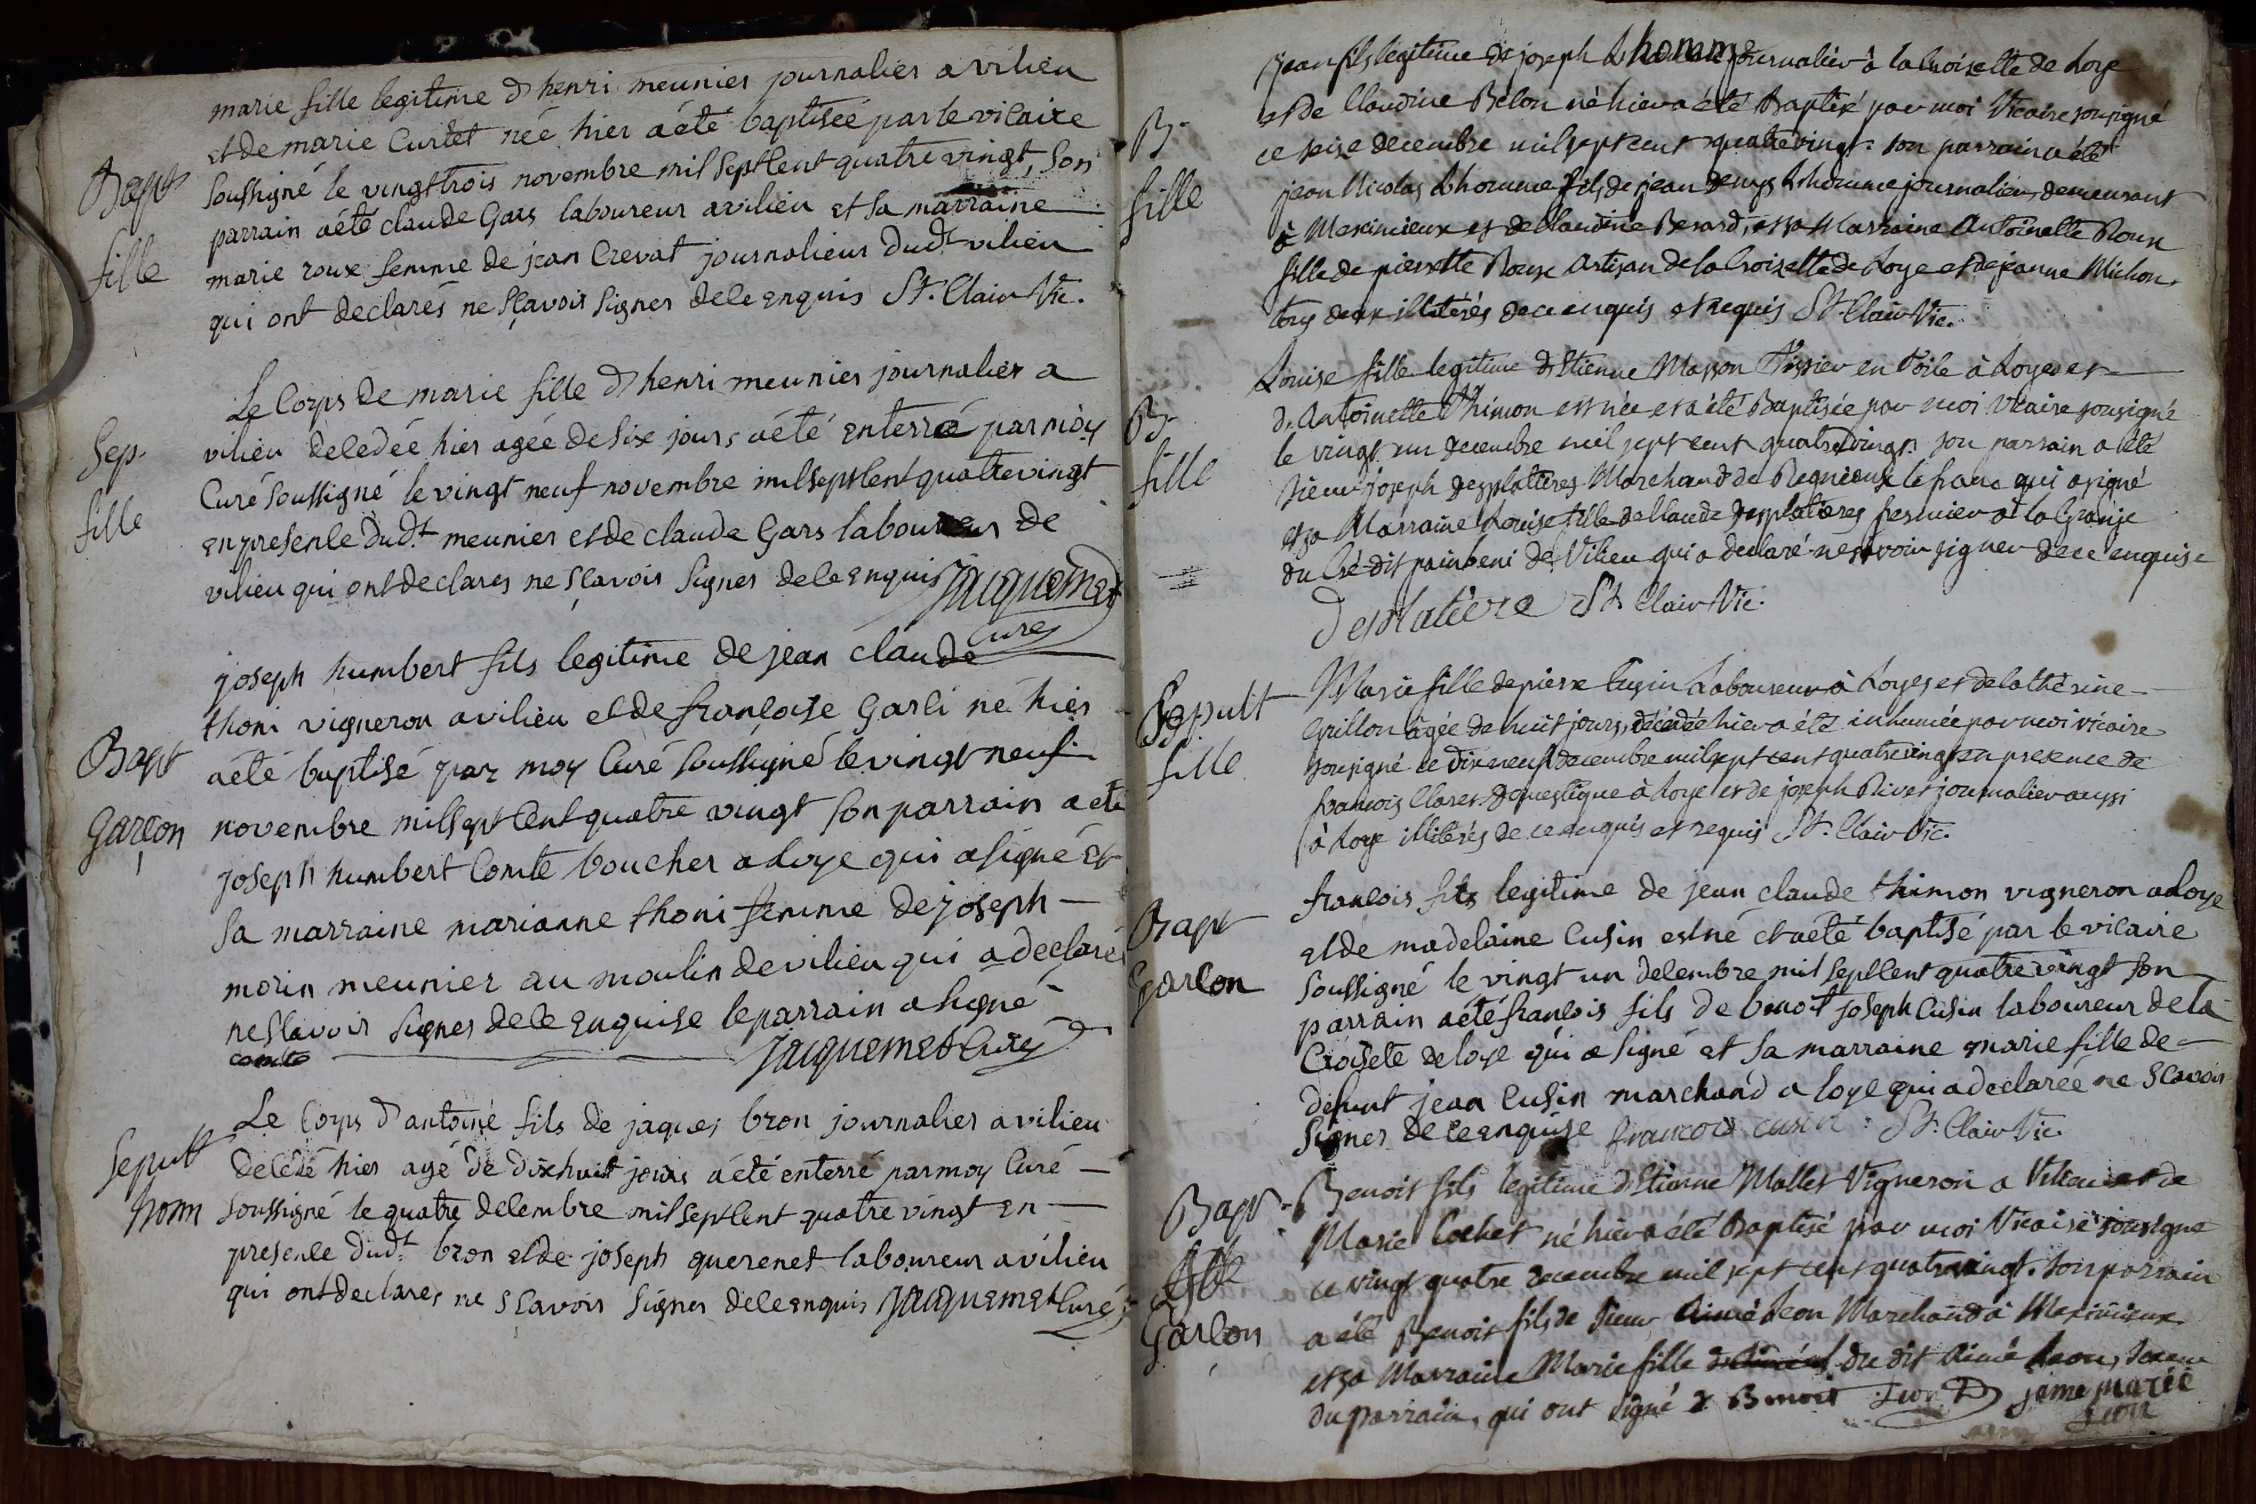 marie fille legitime d henri meunier journalier a vilieu
et de marie Curtet née hier a été baptisée par le vicaire
Bapt
soussigné le vingt trois novembre mil sept cent quatre vingt, son
parrain a été claude Gars laboureur a vilieu et sa marraine
fille
marie roux femme de jean Crevat journalieur dudt vilieu
qui ont declarés ne sçavoir signer de ce enquis St. Clair Vic.
Le Corps de marie fille d henri meunier journalier a
Sep.
vilieu decedée hier agée de six jours a été enterré par moy
Curé soussigné le vingt neuf novembre mil sept cent quatre vingt
fille
en presence dudt meunier et de claude Gars laboureur de
vilieu qui ont declares ne sçavoir signer de ce enquis Jacquemet
Curé
joseph humbert fils legitime de jean claude
thoni vigneron a vilieu et de françoise Garsi né hier
Bapt
a été baptisé par moy Curé soussigné le vingt neuf
Garçon
novembre mil sept cent quatre vingt son parrain a été
joseph humbert Comte boucher a loye qui a signé et
sa marraine marianne thoni femme de joseph
morin meunier au moulin de vilieu qui a declaré
ne scavoir signer de ce enquise le parrain a signé
comte Jacquemet Curé
Le Corps d antoine fils de jaques bron journalier a vilieu
Sepult
decedé hier agé de dixhuit jours a été enterré par moy Curé
hom
soussigné le quatre decembre mil sept cent quatre vingt en
presence dudt bron et de joseph querenet laboureur a vilieu
qui ont declares ne scavoir signer de ce enquis Jacquemet Curé
jean fils legitime de joseph Lhomme journalier à la Croisette de Loye
et de Claudine Belon né hier a été Baptisé par moi Vicaire sousigné
B.
ce seize decembre mil sept cent quatre vingt. son parrain a été
fille
jean Nicolas Lhomme fils de jean denys Lhomme journalier, demeurant
à Meximieux et de Claudine Berard, et sa Marraine Antoinette Roux
fille de pierrette Roux Artisan de la Croisette de Loye et de jeanne Michon.
tous deux illiterés de ce enquis et requis St. Clair Vic.
Louise fille legitime d'Etienne Masson Tissier en Toile à Loyes et
d'Antoinette Thimon est née et a été Baptisée par moi Vicaire sousigné
B.
le vingt un decembre mil sept cent quatre vingt. son parrain a été
fille
sieur joseph desplatieres Marchand de Regnieux le franc qui a signé
et sa Marraine Louise fille de Claude desplatieres fermier à la Grange
du Cré dit painbeni de Vilieu qui a declaré ne savoir signer de ce enquise
Desplatiere St Clair Vic.
Marie fille de pierre Cusin Laboureur à Loyes et de Cathèrine
Sepult
Guillon agée de huit jours, décédée hier a été inhumée par moi vicaire
fille
sousigné ce dix neuf decembre mil sept cent quatre vingt en presence de
francois Claret domestique à Loye et de joseph Rivet journalier aussi
à Loye illiterés de ce enquis et requis St. Clair Vic.
francois fils legitime de jean claude thimon vigneron a loye
Bapt
et de madelaine Cusin est né et a été baptisé par le vicaire
Garcon
soussigné le vingt un decembre mil sept cent quatre vingt son
parrain a été francois fils de benoit joseph Cusin laboureur de la
Croisete de loye qui a signé et sa marraine marie fille de
defunt jean Cusin marchand a loye qui a declarée ne scavoir
signer de ce enquise francois cusin St. Clair Vic.
Bapt.
Benoit fils legitime d'Etienne Mallet Vigneron a Vilieu et de
Marie Cochet né hier a été Baptisé par moi Vicaire sousigné
ce vingt quatre decembre mil sept cent quatre vingt. son parrain
Garcon
a été Benoit fils de sieur Aimé Leon Marchand à Meximieux
et sa Marraine Marie fille du dit Aimé Leon, soeur
du parrain, qui ont signé Benoit Leon jeme marie
Leon